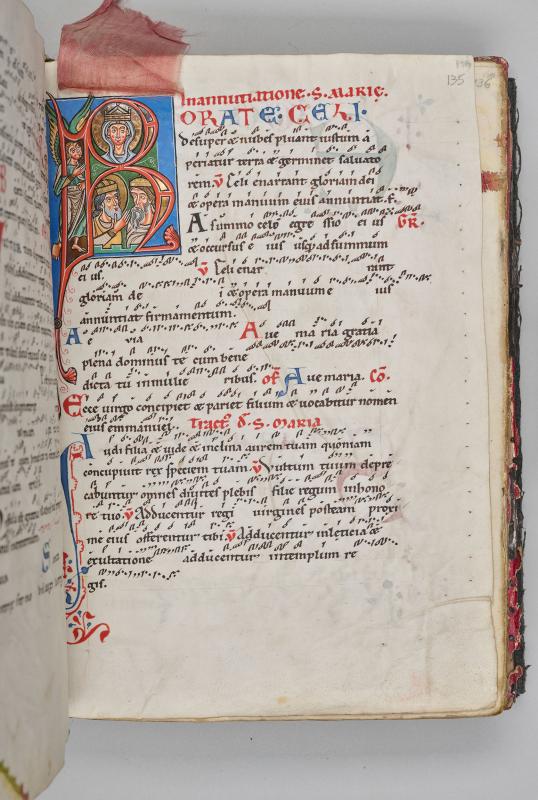 135 136
In annutiatione · S · MARIE.
RORATE · CELI ·
desuper & nubes pluant iustum a
periatur terra & germinet saluato
rem. V Celi enarrant gloriam dei
& opera manuum eius annuntiat .f.
A summo celo egre ssio ei us GR.
& occursus e ius usq; ad summum
ei us. V Celi enar rant
gloriam de i & opera manuum e ius
annuntiat firmamentum.
A e via A ue ma ria gratia
plena dominus te cum bene
dicta tu in mulie ribus. of. Aue maria. Co.
Ecce uirgo concipiet & pariet filium & uocabitur nomen
eius emmanuel. Tract D. S. MARIA
Audi filia & uide & inclina aurem tuam quoniam
concupiuit rex speciem tuam. V Vultum tuum depre
cabuntur omnes diuites plebis filie regum in hono
re tuo. V Adducentur regi uirgines postea m proxi
me eius offerentur tibi. V Adducentur in leticia &
exultatione adducentur in templum re
gis.